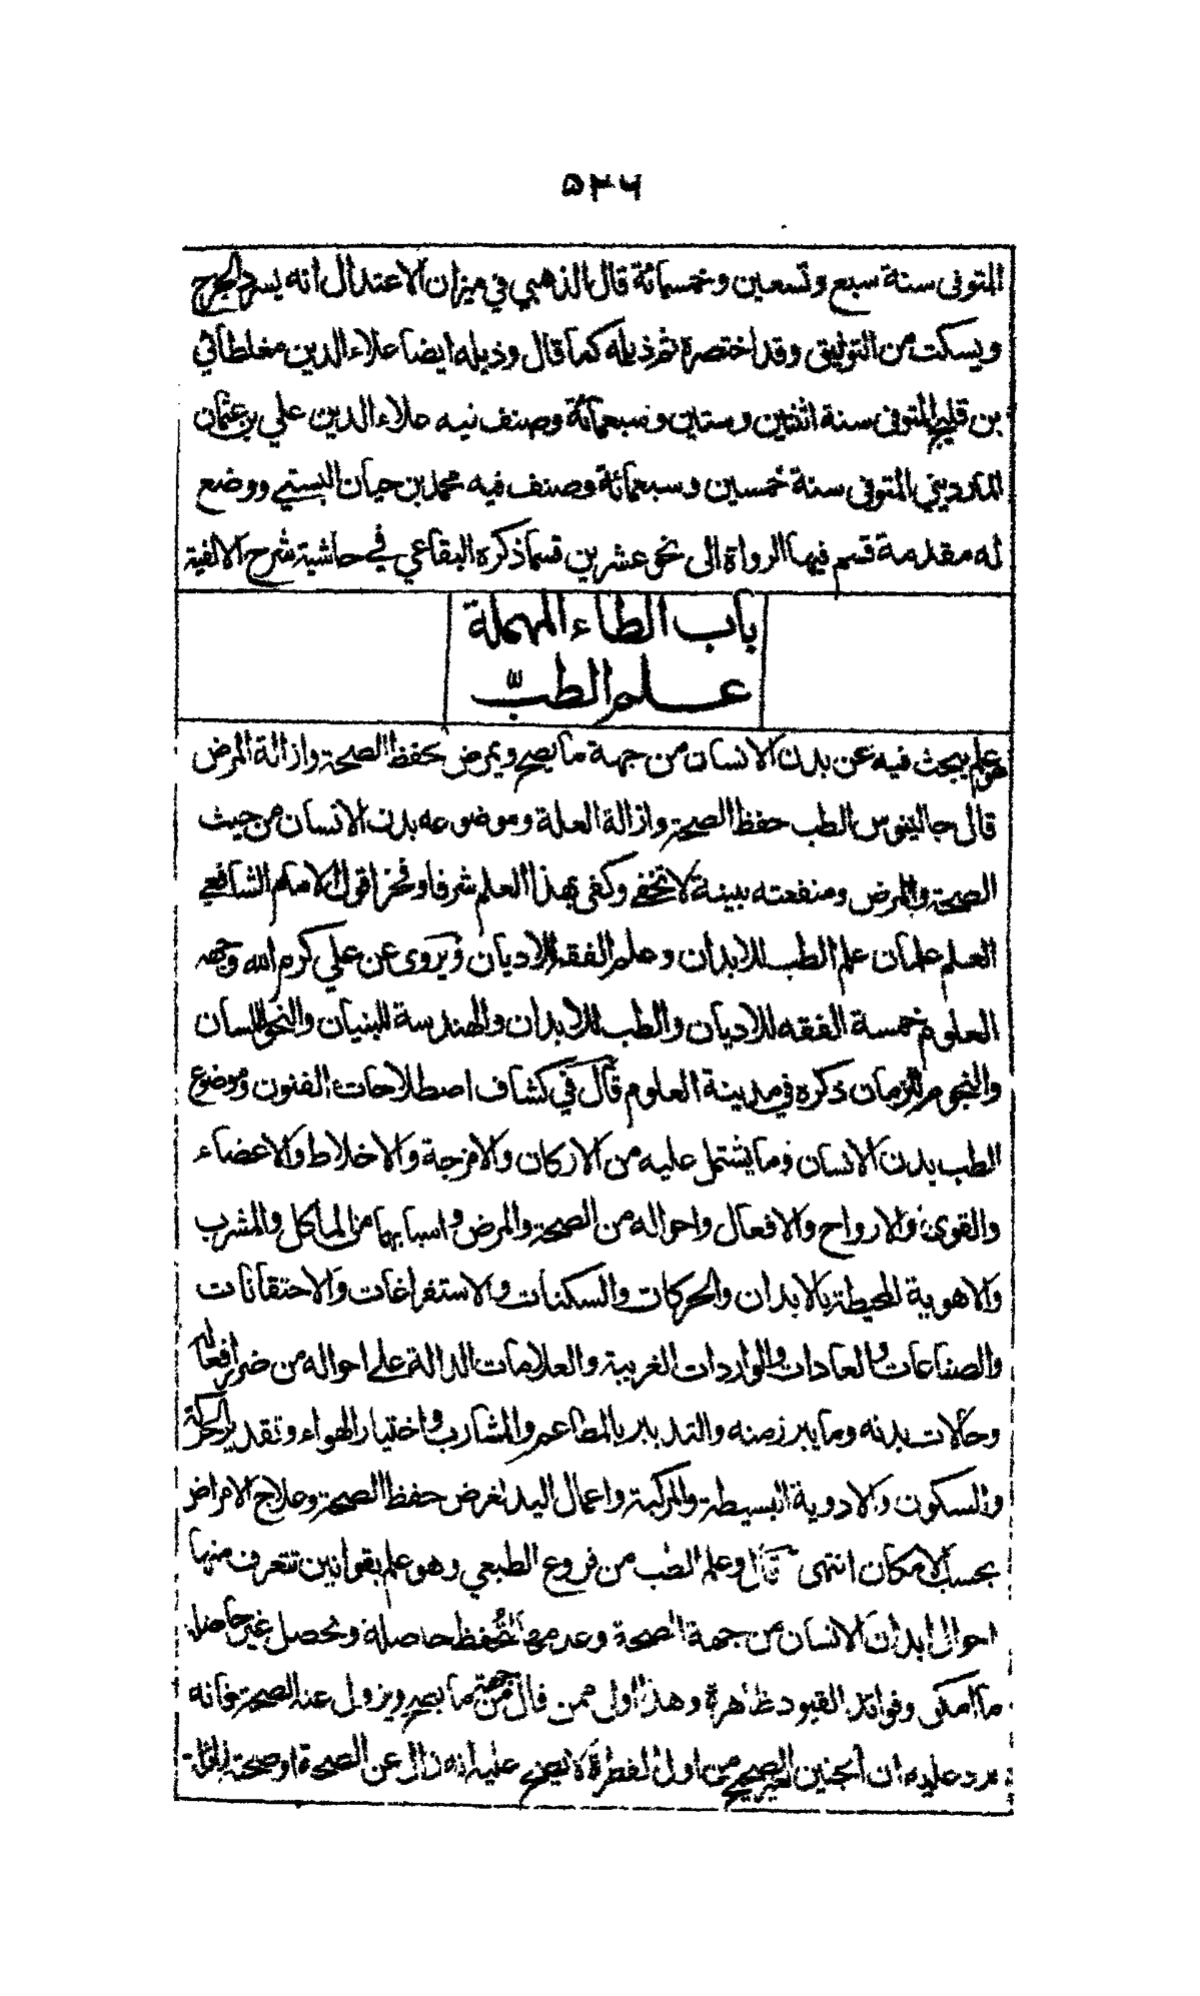 ٥٣٦
المتوفى سنة سبع وتسعين وخمسمائة قال الذهبي في ميزان الاعتدال انه يسرد الجرح
ويسكت من التوثيق وقد اختصره ثم ذيله كما قال وذيله ايضا علاء الدين مغلطائي
بن قليج المتوفى سنة اثنتين وستين وسبعمائة وصنف فيه علاء الدين علي بن عثمان
المارديني المتوفى سنة خمسين وسبعمائة وصنف فيه محمد بن حبان البستي ووضع
له مقدمة قسم فيها الرواة الى نحو عشرين قسما ذكره البقاعي في حاشية شرح الالفية
باب الطاء المهملة
علم الطب
هو علم يبحث فيه عن بدن الانسان من جهة ما يصح ويمرض بحفظ الصحة وازالة المرض
قال جالينوس الطب حفظ الصحة وازالة العلة وموضوعه بدن الانسان من حيث
الصحة والمرض ومنفعته بينة لا تخفى وكفى بهذا العلم شرفا وفخرا قول الامام الشافعي
العلم علمان علم الطب للابدان وعلم الفقه للاديان ويروى عن علي كرم الله وجهه
العلوم خمسة الفقه للاديان والطب للابدان والهندسة للبنيان والنحو للسان
والنجوم للزمان ذكره في مدينة العلوم قال في كشاف اصطلاحات الفنون وموضوع
الطب بدن الانسان وما يشتمل عليه من الاركان والامزجة والاخلاط والاعضاء
والقوى والارواح والافعال واحواله من الصحة والمرض واسبابهما من المأكل والمشرب
والاهوية المحيطة بالابدان والحركات والسكنات والاستفراغات والاحتقانات
والصناعات والعادات والواردات الغريبة والعلامات الدالة على احواله من ضرر افعاله
وحالات بدنه وما يبرز منه والتدبير بالمطاعم والمشارب واختيار الهواء وتقدير الحركة
والسكون والادوية البسيطة والمركبة واعمال اليد لغرض حفظ الصحة وعلاج الامراض
بحسب الامكان انتهى قال وعلم الطب من فروع الطبعي وهو علم بقوانين تتعرف منها
احوال ابدان الانسان من جهة الصحة وعدمها لتحفظ حاصلة وتحصل غير حاصلة
ما امكن وفوائد القيود ظاهرة وهذا اولى ممن قال من جهة ما يصح ويزول عنه الصحة فانه
يرد عليه ان الجنين الغير الصحيح من اول الفطرة لا يصح عليه انه زال عن الصحة او صحته زائلة